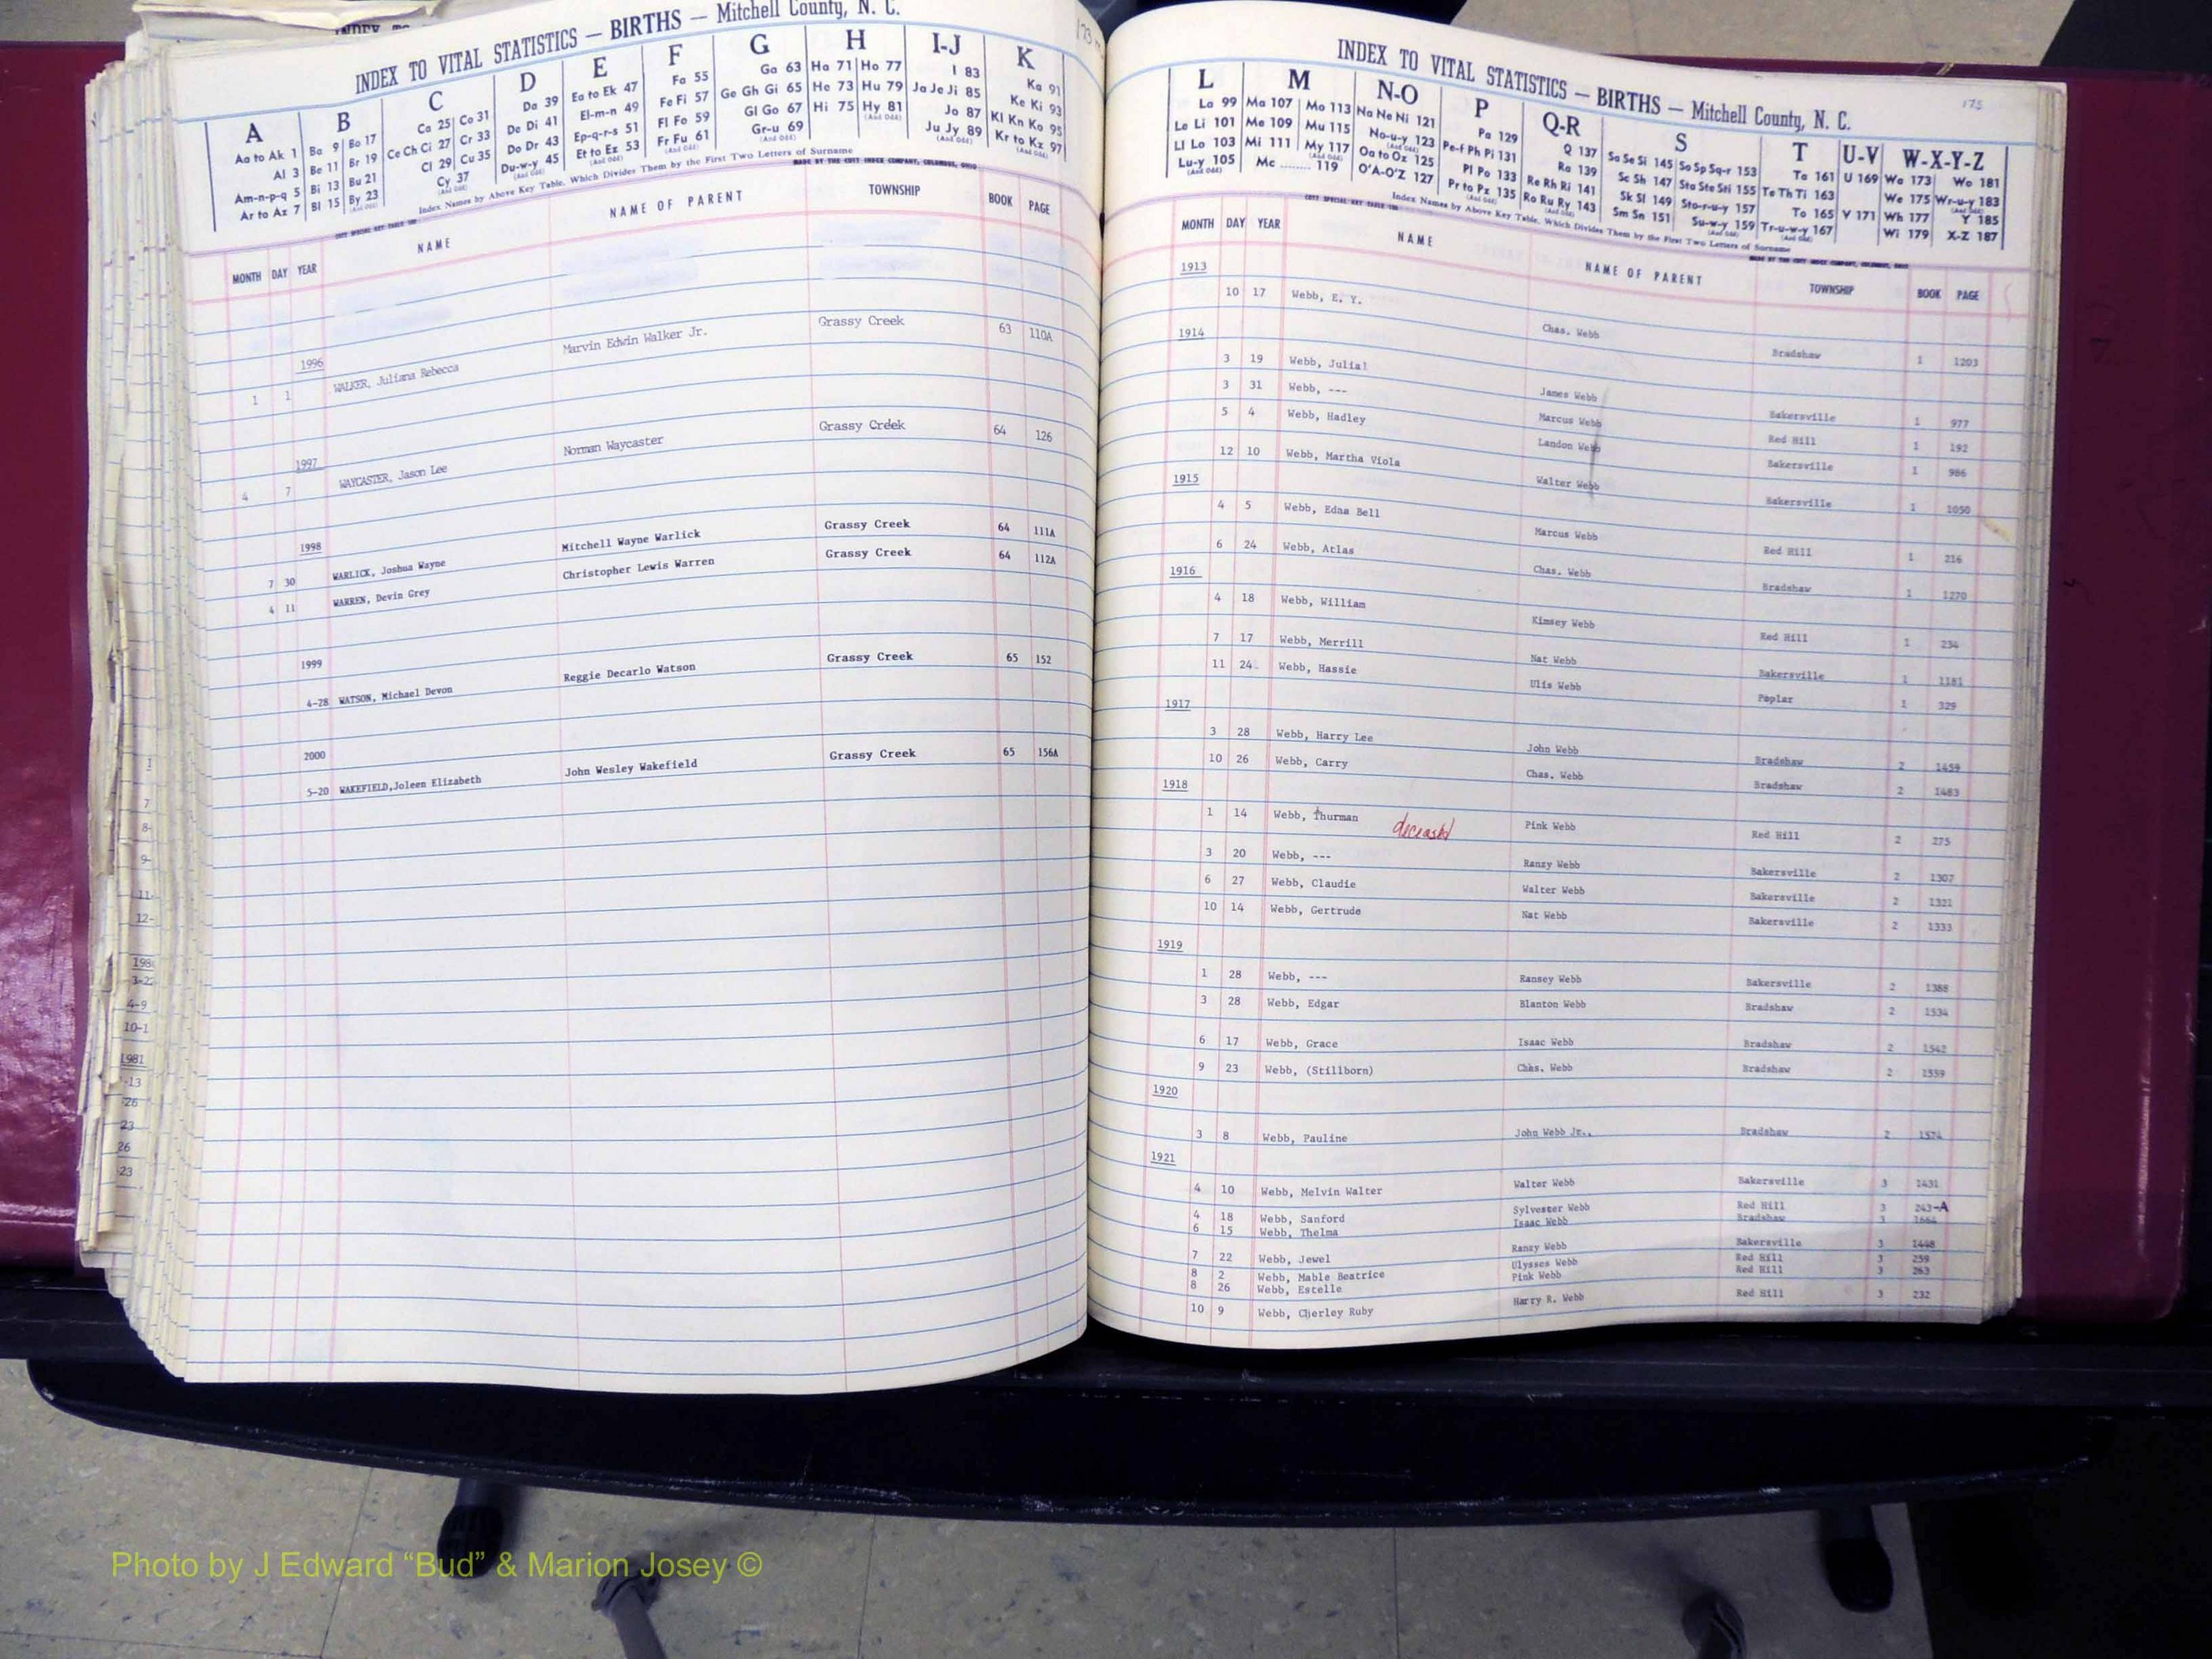 INDEX TO VITAL STATISTICS — BIRTHS — Mitchell County, N. C.
A B C D E F G H I-J K
Aa to Ak 1 Ba 9 Bo 17 Ca 25 Co 31 Da 39 Ea to Ek 47 Fa 55 Ga 63 Ha 71 Ho 77 I 83 Ka 91
Al 3 Be 11 Br 19 Ce Ch Ci 27 Cr 33 De Di 41 El-m-n 49 Fe Fi 57 Ge Gh Gi 65 He 73 Hu 79 Ja Je Ji 85 Ke Ki 93
Am-n-p-q 5 Bi 13 Bu 21 Cl 29 Cu 35 Do Dr 43 Ep-q-r-s 51 Fl Fo 59 Gl Go 67 Hi 75 Hy 81 Jo 87 Kl Kn Ko 95
Ar to Az 7 Bl 15 By 23 Cy 37 Du-w-y 45 Et to Ez 53 Fr Fu 61 Gr-u 69 Ju Jy 89 Kr to Kz 97
Index Names by Above Key Table, Which Divides Them by the First Two Letters of Surname
MONTH DAY YEAR NAME NAME OF PARENT TOWNSHIP BOOK PAGE
1996
1 1 WALKER, Juliana Rebecca Marvin Edwin Walker Jr. Grassy Creek 63 110A
1997
4 7 WAYCASTER, Jason Lee Norman Waycaster Grassy Creek 64 126
1998
7 30 WARLICK, Joshua Wayne Mitchell Wayne Warlick Grassy Creek 64 111A
4 11 WARREN, Devin Grey Christopher Lewis Warren Grassy Creek 64 112A
1999
4-28 WATSON, Michael Devon Reggie Decarlo Watson Grassy Creek 65 152
2000
5-20 WAKEFIELD,Joleen Elizabeth John Wesley Wakefield Grassy Creek 65 156A
INDEX TO VITAL STATISTICS — BIRTHS — Mitchell County, N. C.
175
L M N-O P Q-R S T U-V W-X-Y-Z
La 99 Ma 107 Mo 113 Na Ne Ni 121 Pa 129 Q 137 Sa Se Si 145 So Sp Sq-r 153 Ta 161 U 169 Wa 173 Wo 181
Le Li 101 Me 109 Mu 115 No-u-y 123 Pe-f Ph Pi 131 Ra 139 Sc Sh 147 Sta Ste Sti 155 Te Th Ti 163 We 175 Wr-u-y 183
Ll Lo 103 Mi 111 My 117 Oa to Oz 125 Pl Po 133 Re Rh Ri 141 Sk Sl 149 Sto-r-u-y 157 To 165 V 171 Wh 177 Y 185
Lu-y 105 Mc 119 O'A-O'Z 127 Pr to Pz 135 Ro Ru Ry 143 Sm Sn 151 Su-w-y 159 Tr-u-w-y 167 Wi 179 X-Z 187
Index Names by Above Key Table, Which Divides Them by the First Two Letters of Surname
MONTH DAY YEAR NAME NAME OF PARENT TOWNSHIP BOOK PAGE
1913
10 17 Webb, E. Y. Chas. Webb Bradshaw 1 1203
1914
3 19 Webb, Julial James Webb Bakersville 1 977
3 31 Webb, --- Marcus Webb Red Hill 1 192
5 4 Webb, Hadley Landon Webb Bakersville 1 986
12 10 Webb, Martha Viola Walter Webb Bakersville 1 1050
1915
4 5 Webb, Edna Bell Marcus Webb Red Hill 1 216
6 24 Webb, Atlas Chas. Webb Bradshaw 1 1270
1916
4 18 Webb, William Kimsey Webb Red Hill 1 234
7 17 Webb, Merrill Nat Webb Bakersville 1 1181
11 24 Webb, Hassie Ulis Webb Poplar 1 329
1917
3 28 Webb, Harry Lee John Webb Bradshaw 2 1459
10 26 Webb, Carry Chas. Webb Bradshaw 2 1483
1918
1 14 Webb, Thurman deceased Pink Webb Red Hill 2 275
3 20 Webb, --- Ranzy Webb Bakersville 2 1307
6 27 Webb, Claudie Walter Webb Bakersville 2 1321
10 14 Webb, Gertrude Nat Webb Bakersville 2 1333
1919
1 28 Webb, --- Ransey Webb Bakersville 2 1388
3 28 Webb, Edgar Blanton Webb Bradshaw 2 1534
6 17 Webb, Grace Isaac Webb Bradshaw 2 1542
9 23 Webb, (Stillborn) Chas. Webb Bradshaw 2 1559
1920
3 8 Webb, Pauline John Webb Jr., Bradshaw 2 1574
1921
4 10 Webb, Melvin Walter Walter Webb Bakersville 3 1431
4 18 Webb, Sanford Sylvester Webb Red Hill 3 243-A
6 15 Webb, Thelma Isaac Webb Bradshaw 3 1664
7 22 Webb, Jewel Ranzy Webb Bakersville 3 1448
8 2 Webb, Mable Beatrice Ulysses Webb Red Hill 3 259
8 26 Webb, Estelle Pink Webb Red Hill 3 263
10 9 Webb, Cherley Ruby Harry R. Webb Red Hill 3 232
Photo by J Edward “Bud” & Marion Josey ©